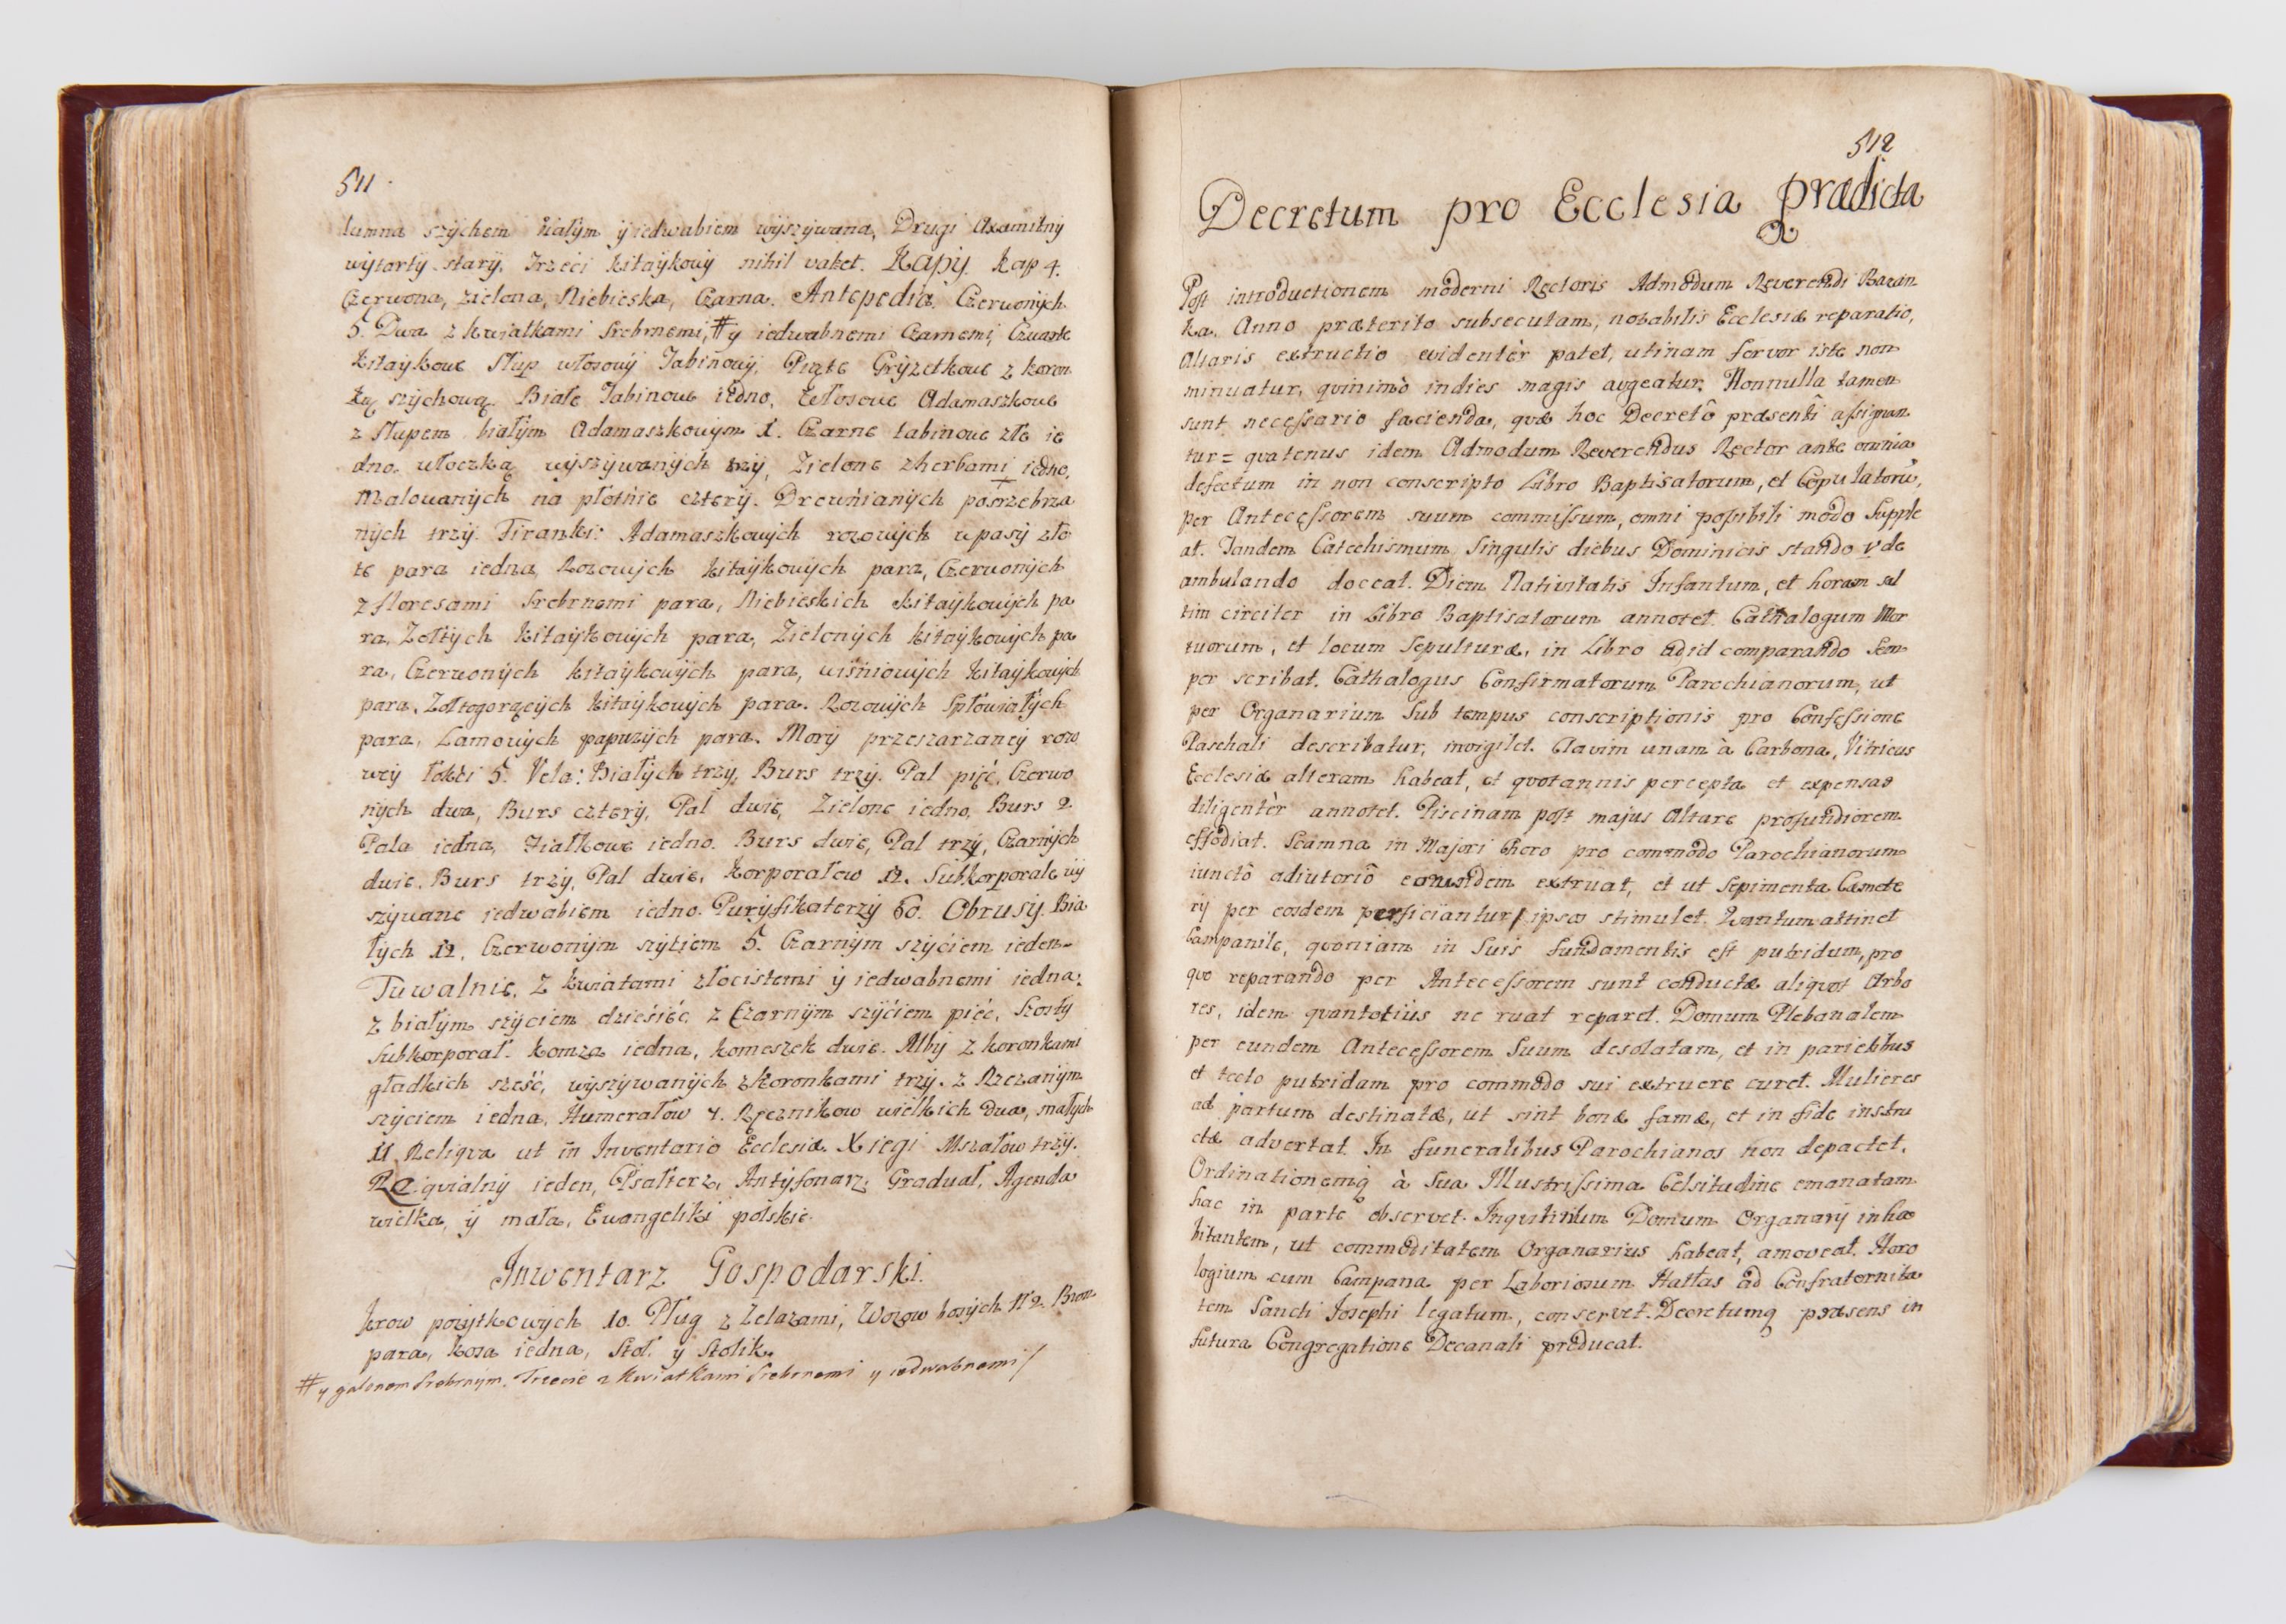 511
lumna szychem białym ÿ iedwabiem wÿszÿwana, Drugi Axamitnÿ
wÿtartÿ starÿ. Trzeci kitaÿkowÿ nihil valet. Kapÿ. kap 4.
Czerwona, zielona, Niebieska, Czarna. Antepedia. Czerwonÿch
5. Dwa z kwiatkami srebrnemi, # ÿ iedwabnemi Czarnemi, Czwarte
kitaÿkowe Słup włosowÿ Tabinowÿ. Piąte Grÿzetkowe z koron
ką szÿchową. Białe Tabinowe iedno, Adamaszkowe
z słupem białÿm Adamaszkowÿm 1. Czarne tabinowe złe ie
dno. włoczką wÿszÿwanÿch trzÿ, Zielone z herbami iedno,
Malowanÿch na płotnie czterÿ. Drewnianÿch posrzebrza
nÿch trzÿ. Firanki: Adamaszkowÿch rozowÿch w pasÿ zło
te para iedna, Rozowÿch kitaÿkowÿch para, Czerwonÿch
z floresami srebrnemi para, Niebieskich kitaÿkowÿch pa
ra, Zołtÿch kitaÿkowÿch para, Zielonÿch kitaÿkowÿch pa
ra, Czerwonÿch kitaÿkowÿch para, wiśniowÿch kitaÿkowÿch
para. Zołtogorącÿch kitaÿkowÿch para. Rozowÿch spłowiałÿch
para, Lamowÿch papuzÿch para. Morÿ przeszarzaneÿ rozo
weÿ łokci 5. Vela: Białÿch trzÿ, Burs trzÿ. Pal pięć, Czerwo
nÿch dwa, Burs czterÿ, Pal dwie, Zielone iedno, Burs 2
Pala iedna, Fiałkowe iedno. Burs dwie, Pal trzÿ, Czarnÿch
dwie, Burs trzÿ, Pal dwie, korporałow 12. Subkorporale wÿ
szÿwane iedwabiem iedno. Purÿfikaterzÿ 60. Obrusÿ. Bia
łÿch 12, Czerwonÿm szÿciem 5. Czarnÿm szÿciem ieden.
Tuwalnie. Z kwiatami złocistemi ÿ iedwabnemi iedna.
z białÿm szÿciem dziesięć z Czarnÿm szÿciem pięć, Szostÿ
Subkorporał. komza iedna, komeszek dwie. Alby z koronkami
gładkich sześć, wÿszÿwanÿch z koronkami trzÿ. z Rzezanÿm
szÿciem iedna, Humerałow 7. Ręcznikow wielkich dwa, małÿch
11 Reliqva ut in Inventario Ecclesiæ Xiegi Mszałow trzÿ.
Reqvialnÿ ieden, Psałterz, Antÿfonarz, Graduał, Agenda
wielka, ÿ mała, Ewangeliki polskie.
Inwentarz Gospodarski.
krow pozÿtkowÿch 10. Pług z Zelazami, Wozow bosÿch N 2. Bron
para, kosa iedna, Stoł ÿ Stolik.
# y galonem srebrnym. Trzecie z kwiatkami srebrnemi y iedwabnemi /
512
Decretum pro Ecclesia prædicta
Post introductionem moderni Rectoris Admodum Reverendi Baran
ka. Anno præterito subsecutam, notabilis Ecclesiæ reparatio,
Altaris extructio evidentèr patet, utinam fervor iste non
minuatur, qvinimò indies magis augeatur. Nonnulla tamen
sunt necessario facienda, qvæ hoc Decretô præsenti assignan
tur = qvatenus idem Admodum Reverendus Rector ante omnia
defectum in non conscripto Libro Baptisatorum, et Copulatorũ,
per Antecessorem suum commissum, omni possibili modo supple
at. Tandem Catechismum singulis diebus Dominicis stando v de
ambulando doceat. Diem Nativitatis Infantum, et horam sal
tim circiter in Libro Baptisatorum annotet. Cathalogum Mor
tuorum, et locum Sepulturæ, in Libro ad id comparando sem
per scribat. Cathalogus Confirmatorum Parochianorum, ut
per Organarium sub tempus conscriptionis pro Confessione
Paschali describatur, invigilet. Clavim unam à Carbona, Vitricus
Ecclesiæ alteram habeat, et qvotannis percepta et expensas
diligentèr annotet. Piscinam post majus Altare profundiorem
effodiat. Scamna in Majori Choro pro commodo Parochianorum
iunctô adiutoriô eorundem extruat, et ut Sepimenta Cæmete
rÿ per eosdem perficiantur, ipsos stimulet. Qvantum attinet
Campanile, qvoniam in suis fundamentis est putridum, pro
qvo reparando per Antecessorem sunt conductæ aliqvot Arbo
res, idem qvantotiùs ne ruat reparet. Domum Plebanalem
per eundem Antecessorem suum desolatam, et in parietibus
et tecto putridam pro commodo sui extruere curet. Mulieres
ad partum destinatæ, ut sint bonæ famæ, et in fide instru
ctæ advertat. In funeralibus Parochianos non depactet.
Ordinationemq à Sua Illustrissima Celsitudine emanatam
hac in parte observet. Inqvilinum Domum Organarÿ inha
bitantem, ut commoditatem Organarius habeat, amoveat. Horo
logium cum Campana per Laboriosum Hałłas ad Confraternita
tem Sancti Josephi legatum, conservet. Decretumq præsens in
futura Congregatione Decanali producat.